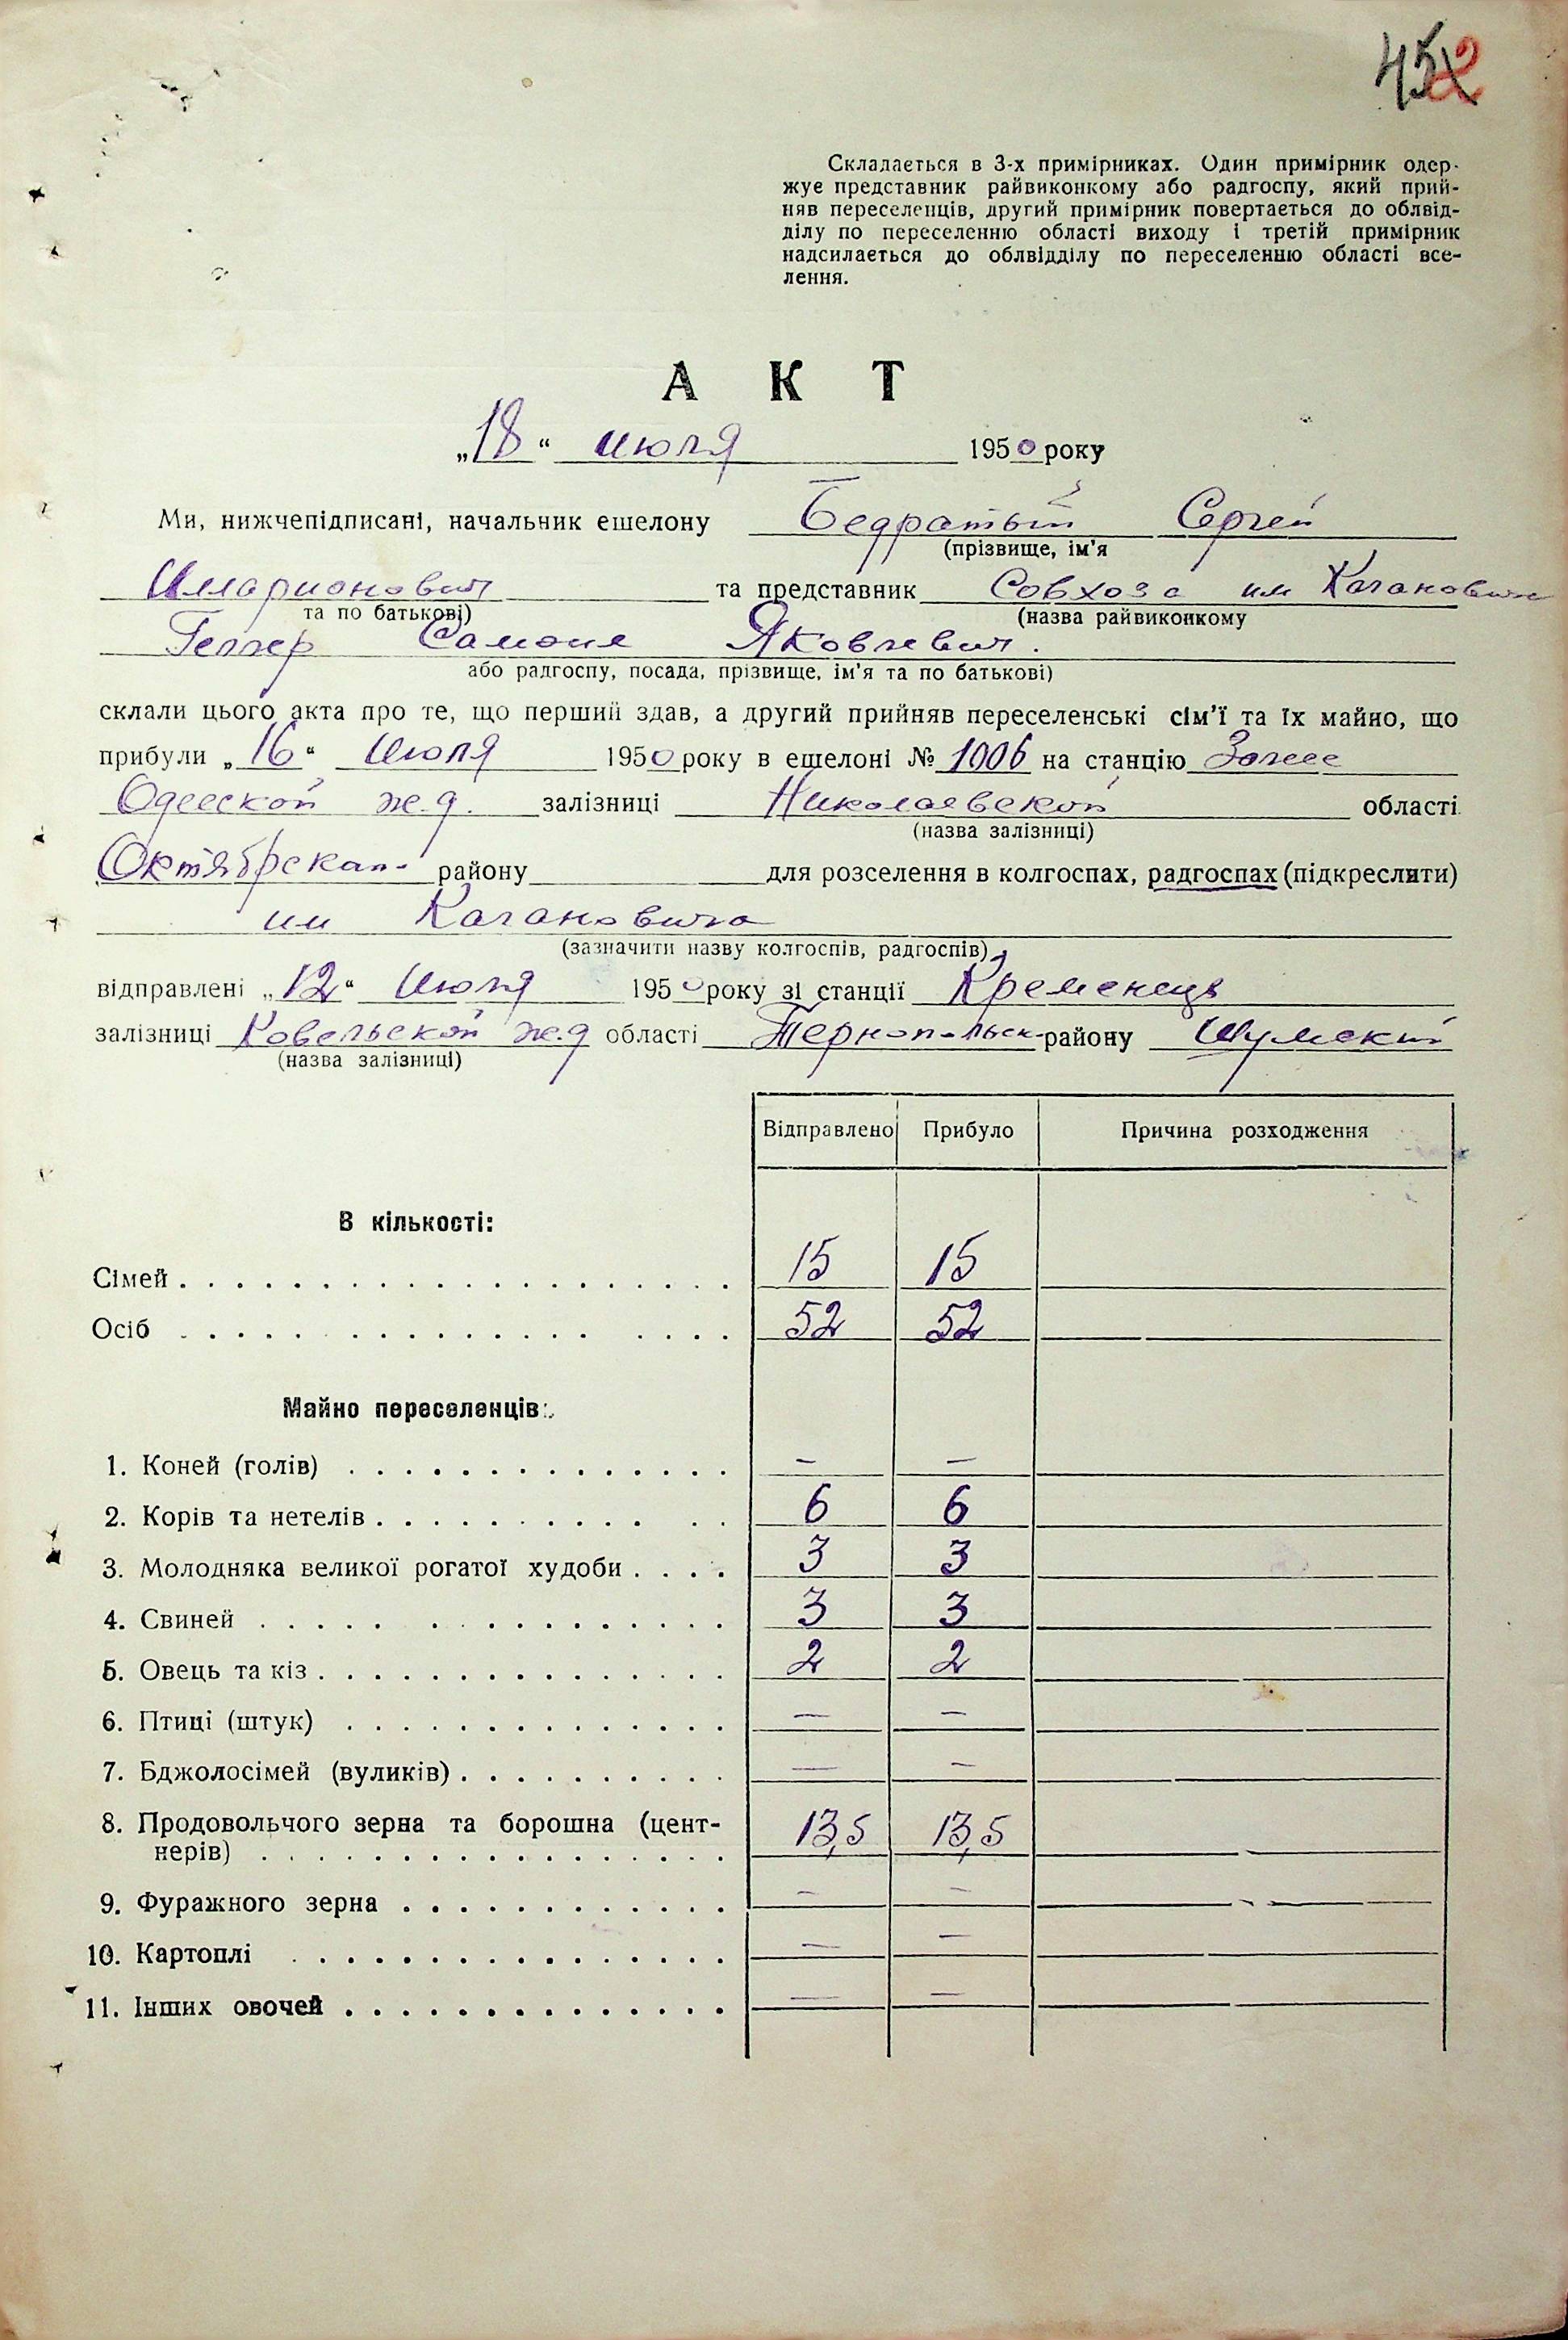 452
Складається в 3-х примірниках. Один примірник одер-
жує представник райвиконкому або радгоспу, який прий-
няв переселенців, другий примірник повертається до облвід-
ділу по переселенню області виходу і третій примірник
надсилається до облвідділу по переселенню області все-
лення.
АКТ
„18“ июля 1950 року
Ми, нижчепідписані, начальник ешелону Бедратый Сергей
(прізвище, ім'я
Илларионович та представник Совхоза им Кагановича
та по батькові) (назва райвиконкому
Самоил Яковлевич.
або радгоспу, посада, прізвище, ім'я та по батькові)
склали цього акта про те, що перший здав, а другий прийняв переселенські сім'ї та їх майно, що
прибули „16“ Июля 1950 року в ешелоні № 1006 на станцію
Одесской ж.д. залізниці Николаевской області
(назва залізниці)
Октябрского району для розселення в колгоспах, радгоспах (підкреслити)
им Кагановича
(зазначити назву колгоспів, радгоспів)
відправлені „12“ Июля 1950 року зі станції Кременець
залізниці Ковельской ж.д області Тернопольск району Шумский
(назва залізниці)
Відправлено Прибуло Причина розходження
В кількості:
Сімей 15 15
Осіб 52 52
Майно переселенців:
1. Коней (голів) — —
2. Корів та нетелів 6 6
3. Молодняка великої рогатої худоби 3 3
4. Свиней 3 3
5. Овець та кіз 2 2
6. Птиці (штук) — —
7. Бджолосімей (вуликів) — —
8. Продовольчого зерна та борошна (цент-
нерів) 13,5 13,5
9. Фуражного зерна — —
10. Картоплі — —
11. Інших овочей — —